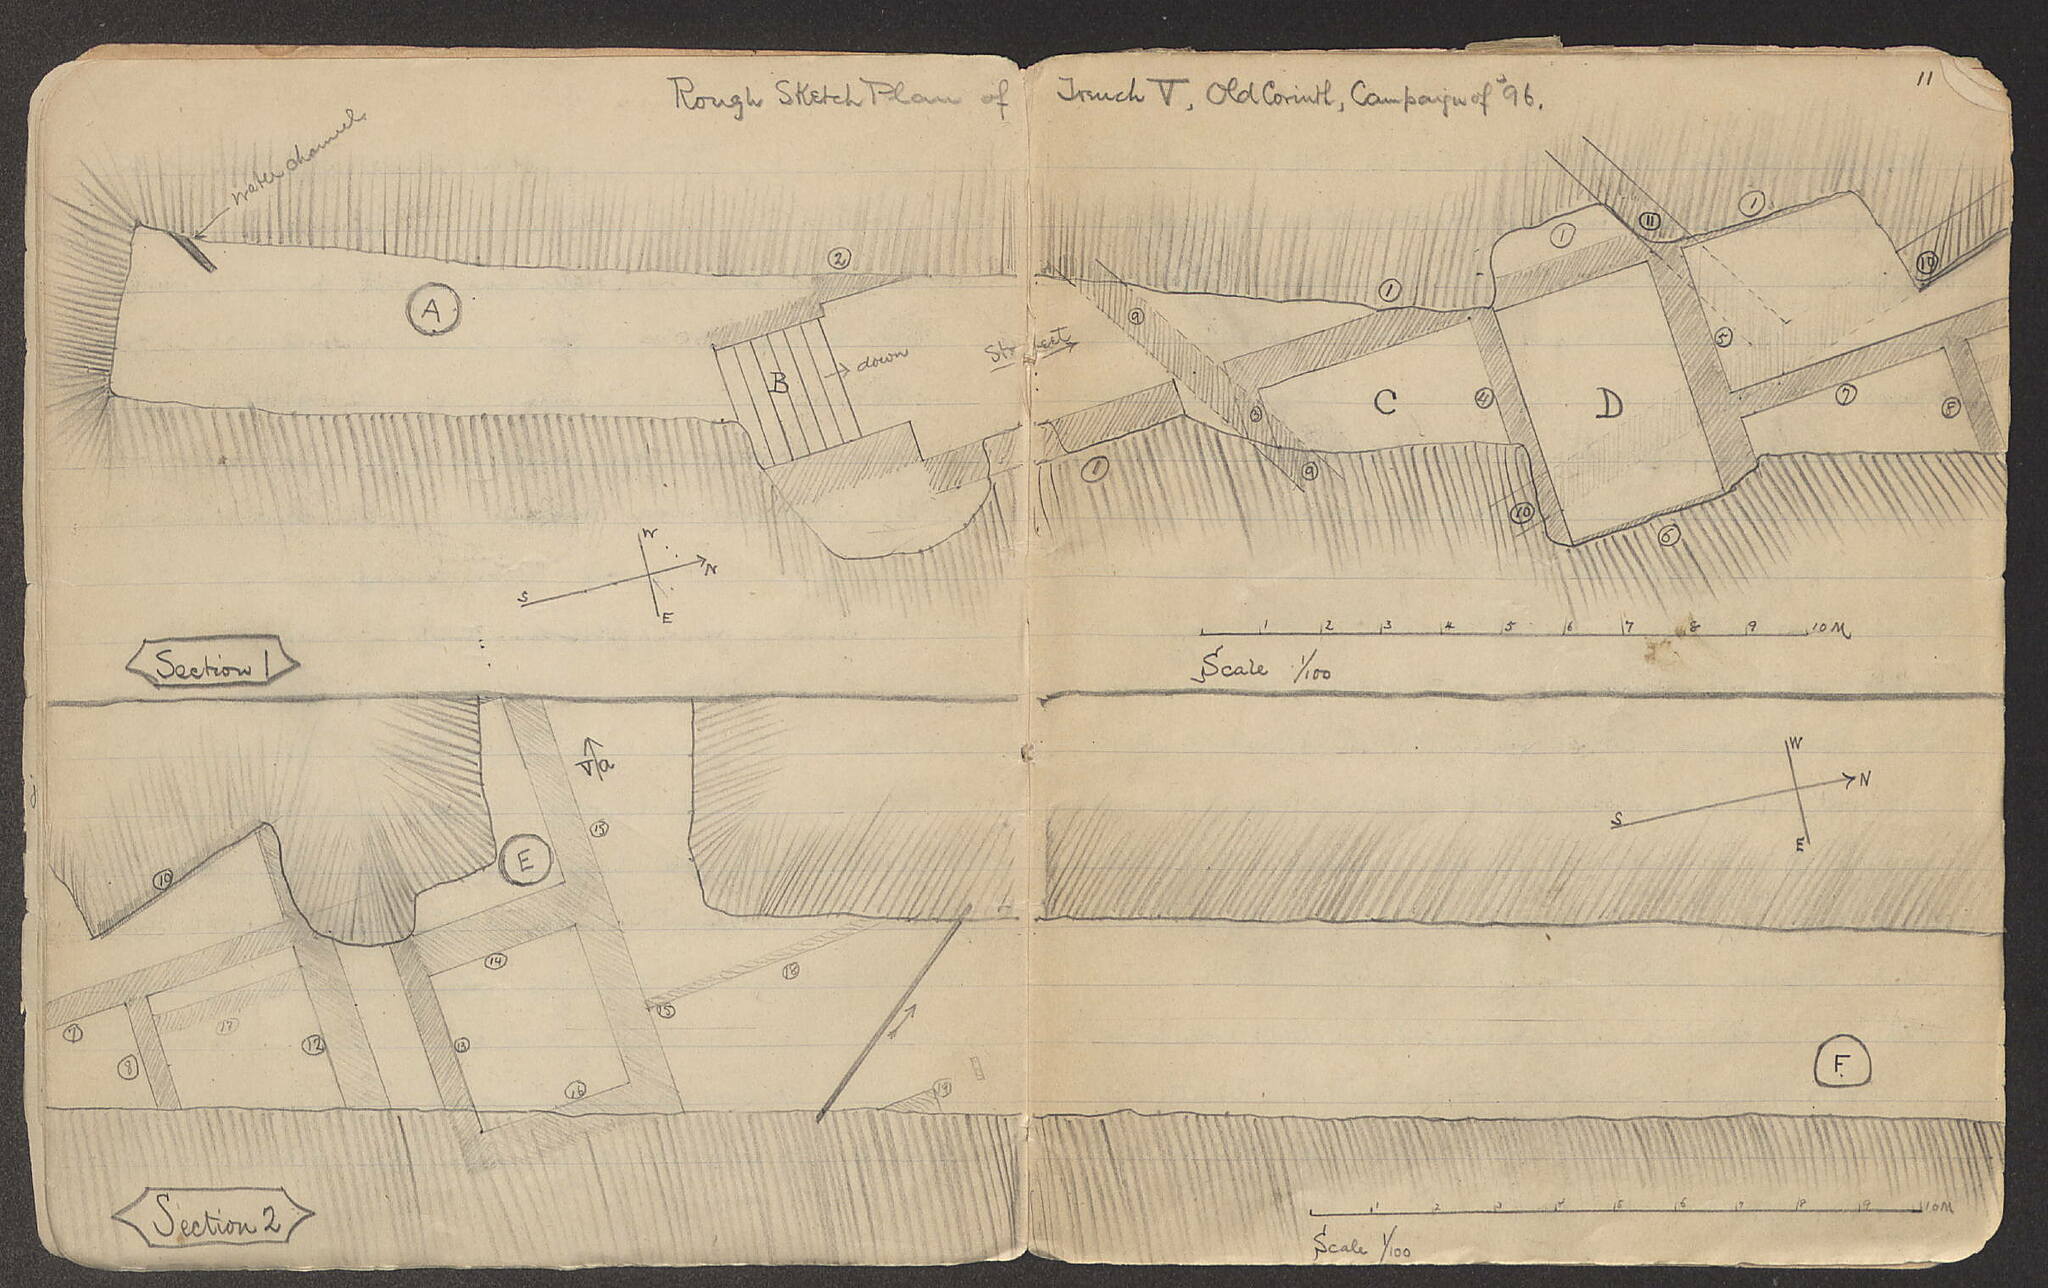 11
Rough Sketch Plan of Trench V, Old Corinth, Campaign of '96.
water channel
2
A
B
→ down
Street
9
1
1
11
1
10
5
3
C
4
D
7
8
1
9
10
6
W
S
N
E
1 2 3 4 5 6 7 8 9 10 M
Scale 1/100
Section 1
V/a
W
S
N
E
15
E
10
14
18
15
7
17
12
13
8
16
19
F
1 2 3 4 5 6 7 8 9 10 M
Scale 1/100
Section 2